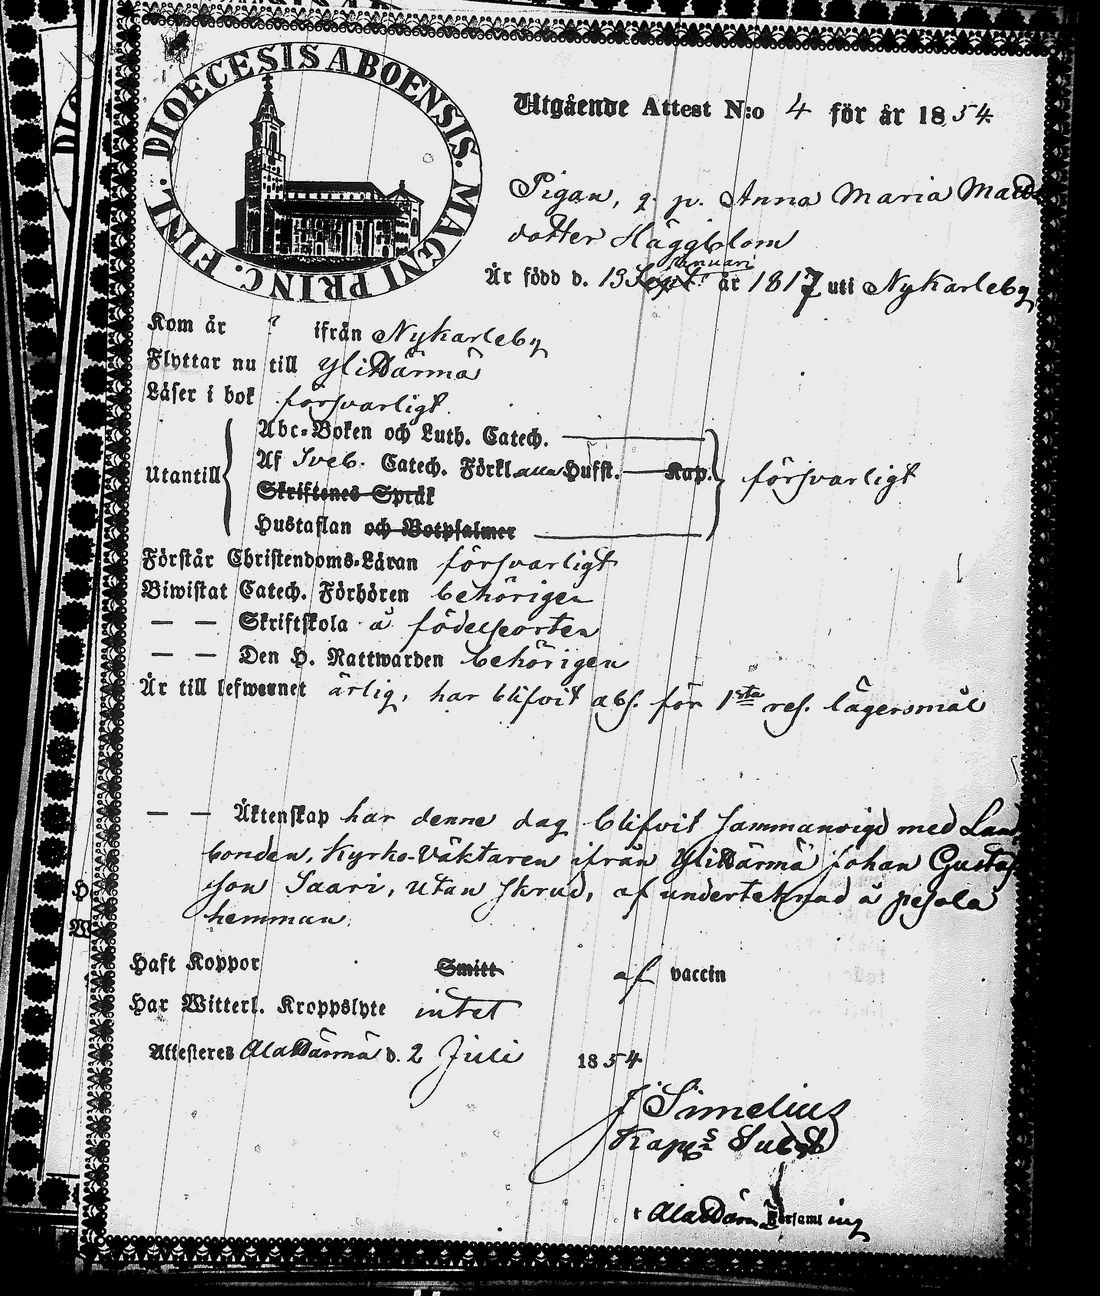 DIOECESIS ABOENSIS. MAGNI PRINC. FINL.
Utgående Attest N:o 4 för år 1854.
Pigan, q. p. Anna Maria Matts
dotter Häggblom
Januari
Är född d. 13 Sept. år 1817 uti Nykarleby
Kom år ? ifrån Nykarleby
Flyttar nu till YliHärmä
Läser i bok försvarligt
Abc-Boken och Luth. Catech.
Utantill
Af Sveb. Catech. Förkl. alla Hufst. Kap.
försvarligt
Skriftenes Språk
Hustaflan och Botpsalmer
Förstår Christendoms-Läran försvarligt
Biwistat Catech. Förhören behörigen
— — Skriftskola å födelseorten
— — Den H. Nattwarden behörigen
Är till lefwernet ärlig, har blifvit abs. för 1sta res. lägersmål
— — Äktenskap har denne dag blifvit sammanvigd med Land
bonden, Kyrko-Väktaren ifrån YliHärmä Johan Gustafs
son Saari, utan skrud, af underteknad å Pesola
hemman.
H
W
Haft Koppor Smitt af vaccin
Har Witterl. Kroppslyte intet
Attesteres AlaHärmä d. 2 Juli 1854
J Simelius
Kapns Subst
i AlaHärmä Församling